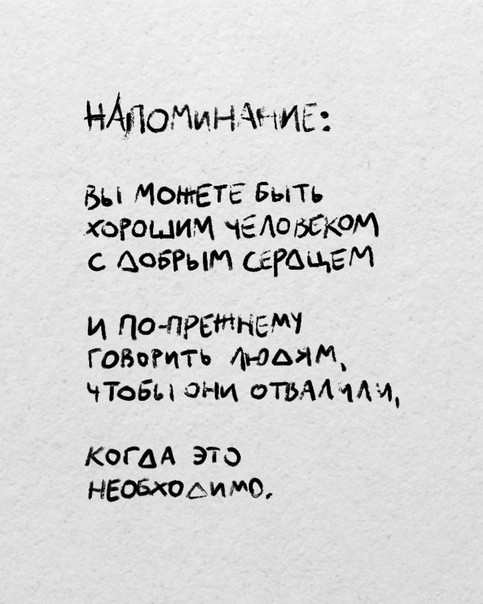 НАПОМИНАНИЕ:
ВЫ МОЖЕТЕ БЫТЬ
ХОРОШИМ ЧЕЛОВЕКОМ
С ДОБРЫМ СЕРДЦЕМ
И ПО-ПРЕЖНЕМУ
ГОВОРИТЬ ЛЮДЯМ,
ЧТОБЫ ОНИ ОТВАЛИЛИ,
КОГДА ЭТО
НЕОБХОДИМО.